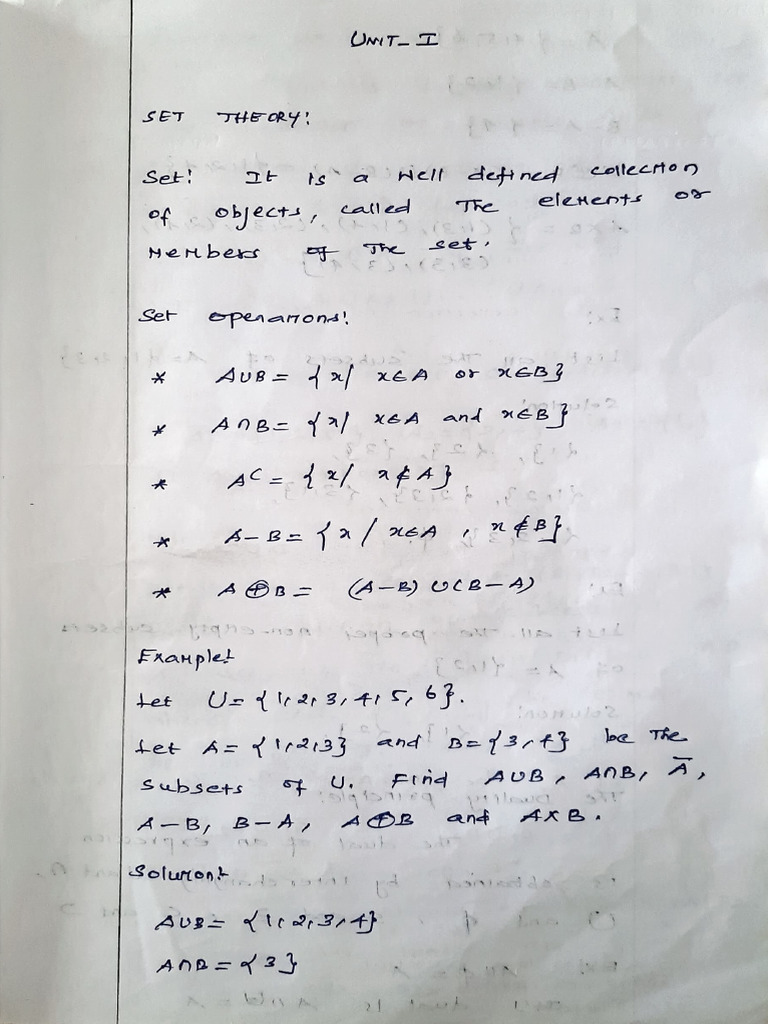 UNIT - I
SET THEORY:
Set: It is a well defined collection
of objects, called the elements or
members of the set.
Set operations:
* A∪B = {x/ x∈A or x∈B}
* A∩B = {x/ x∈A and x∈B}
* A^C = {x/ x∉A}
* A-B = {x/ x∈A, x∉B}
* A⊕B = (A-B)∪(B-A)
Example:
Let U = {1,2,3,4,5,6}.
Let A = {1,2,3} and B = {3,4} be the
subsets of U. Find A∪B, A∩B, Ā,
A-B, B-A, A⊕B and A×B.
Solution:
A∪B = {1,2,3,4}
A∩B = {3}